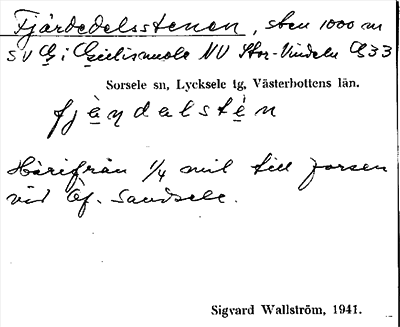 Fjärdedelsstenen, sten 1000 m
SV G i Gielisnuole NV Stor-Vindeln G33
Sorsele sn, Lycksele tg, Västerbottens län.
fjąndalstẹn
Härifrån 1/4 mil till forsen
vid Öf. Sandsele.
Sigvard Wallström, 1941.